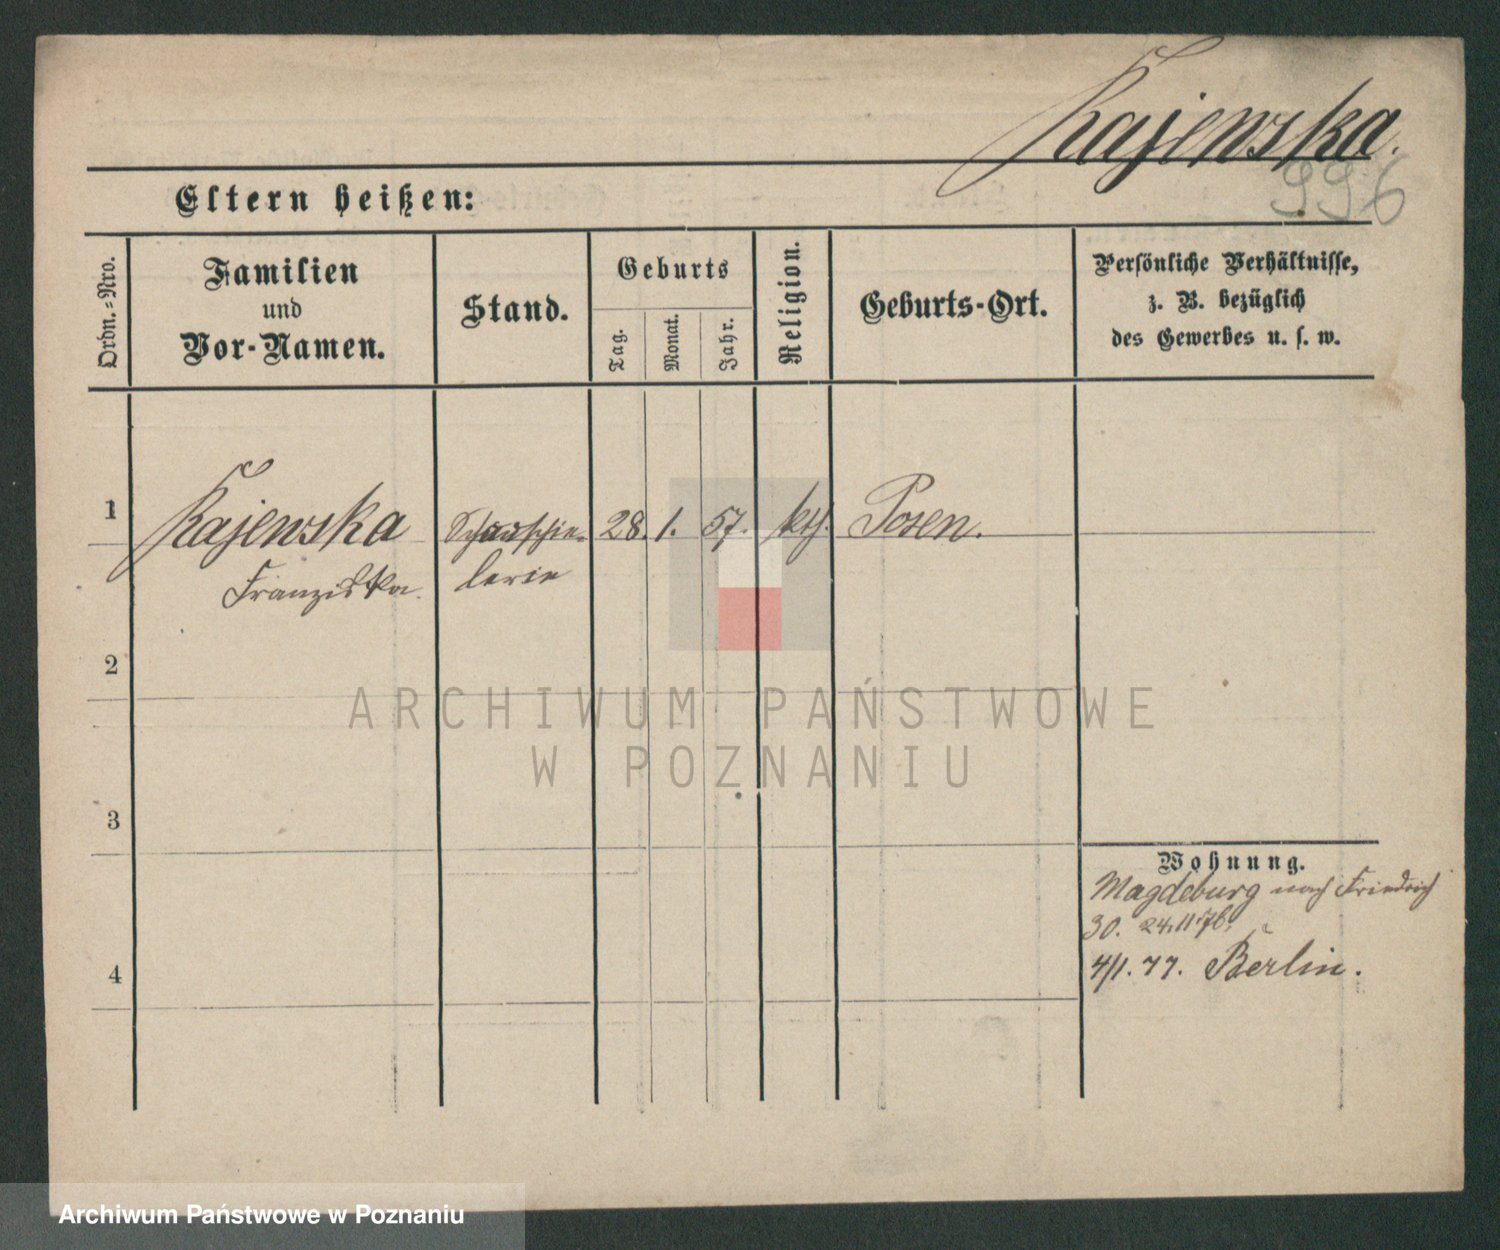 Kajewska.
996
Eltern heißen:
Ordn.-Nro.
Familien
und
Vor-Namen.
Stand.
Geburts
Tag.
Monat.
Jahr.
Religion.
Geburts-Ort.
Persönliche Verhältnisse,
z. B. bezüglich
des Gewerbes u. s. w.
1 Kajewska Schauspie- 28. 1. 57. kth. Posen.
Franziska. lerin
2
3
4
Wohnung.
Magdeburg nach Friedrich
30. 24.11.76.
4/1. 77. Berlin.
ARCHIWUM PAŃSTWOWE
W POZNANIU
Archiwum Państwowe w Poznaniu